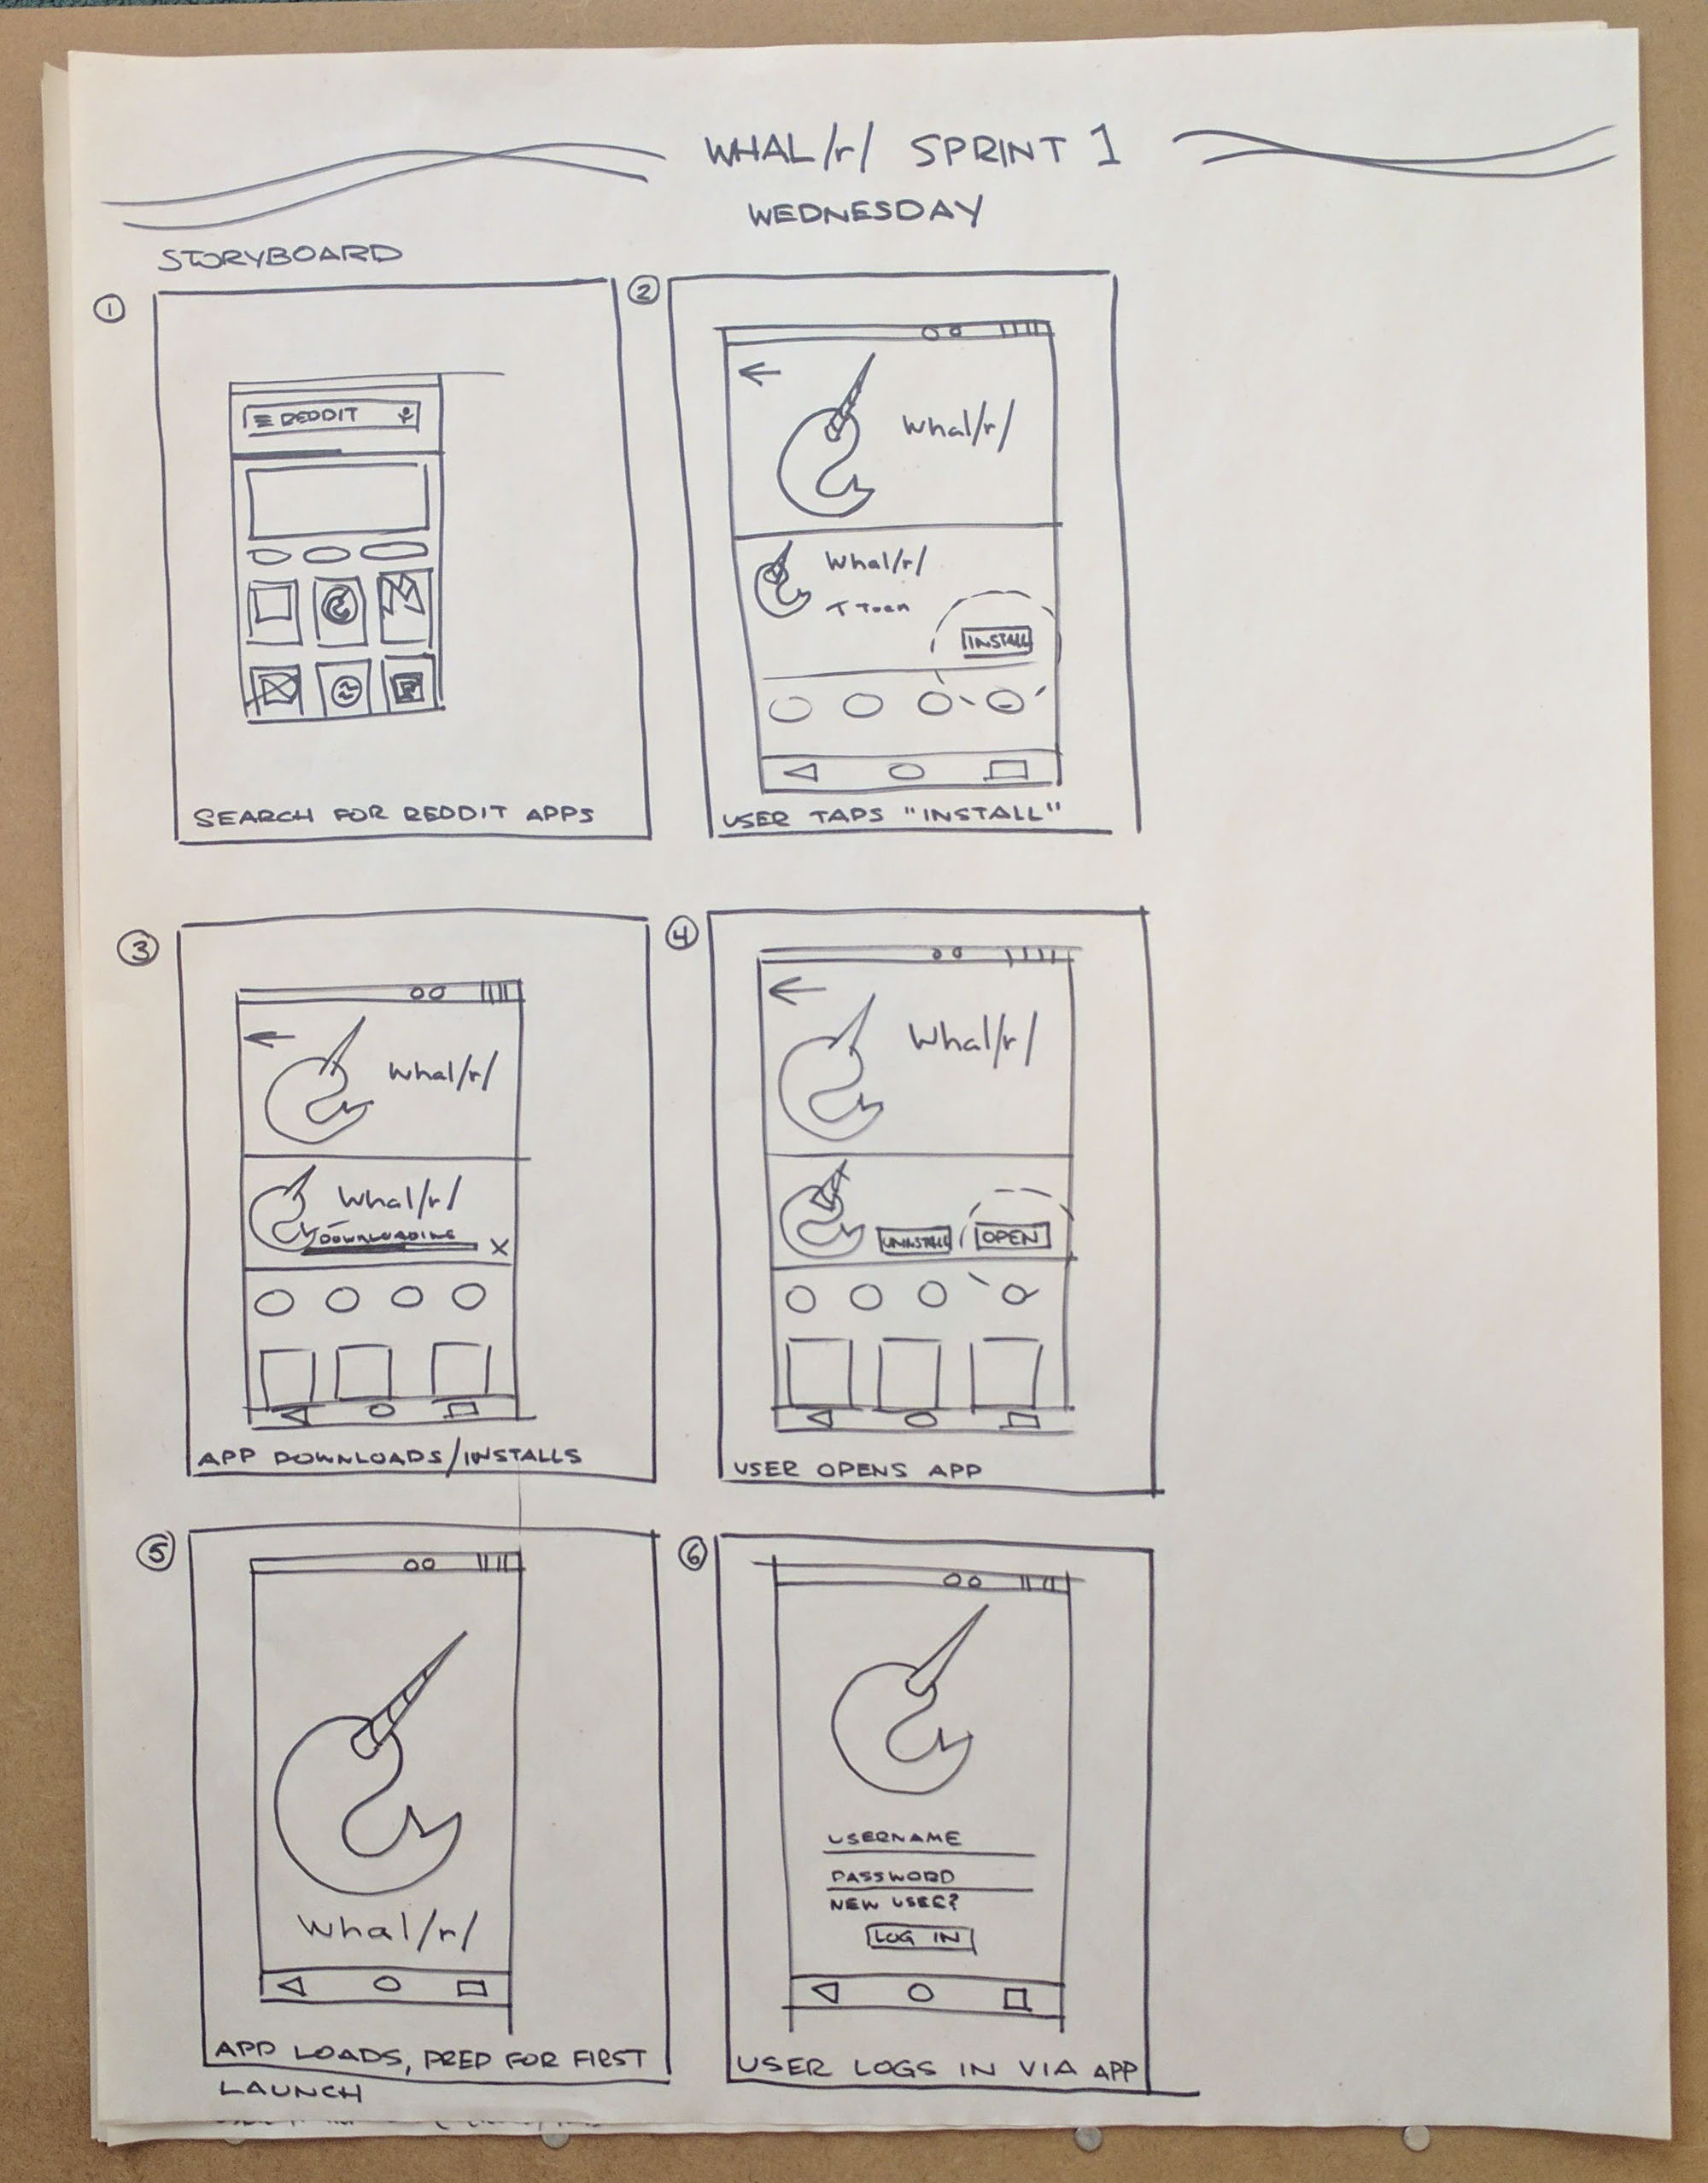 WHAL/r/ SPRINT 1
WEDNESDAY
STORYBOARD
1
REDDIT
SEARCH FOR REDDIT APPS
2
Whal/r/
Whal/r/
INSTALL
USER TAPS "INSTALL"
3
Whal/r/
Whal/r/
DOWNLOADING
X
APP DOWNLOADS/INSTALLS
4
Whal/r/
UNINSTALL
OPEN
USER OPENS APP
5
Whal/r/
APP LOADS, PREP FOR FIRST
LAUNCH
6
USERNAME
PASSWORD
NEW USER?
LOG IN
USER LOGS IN VIA APP